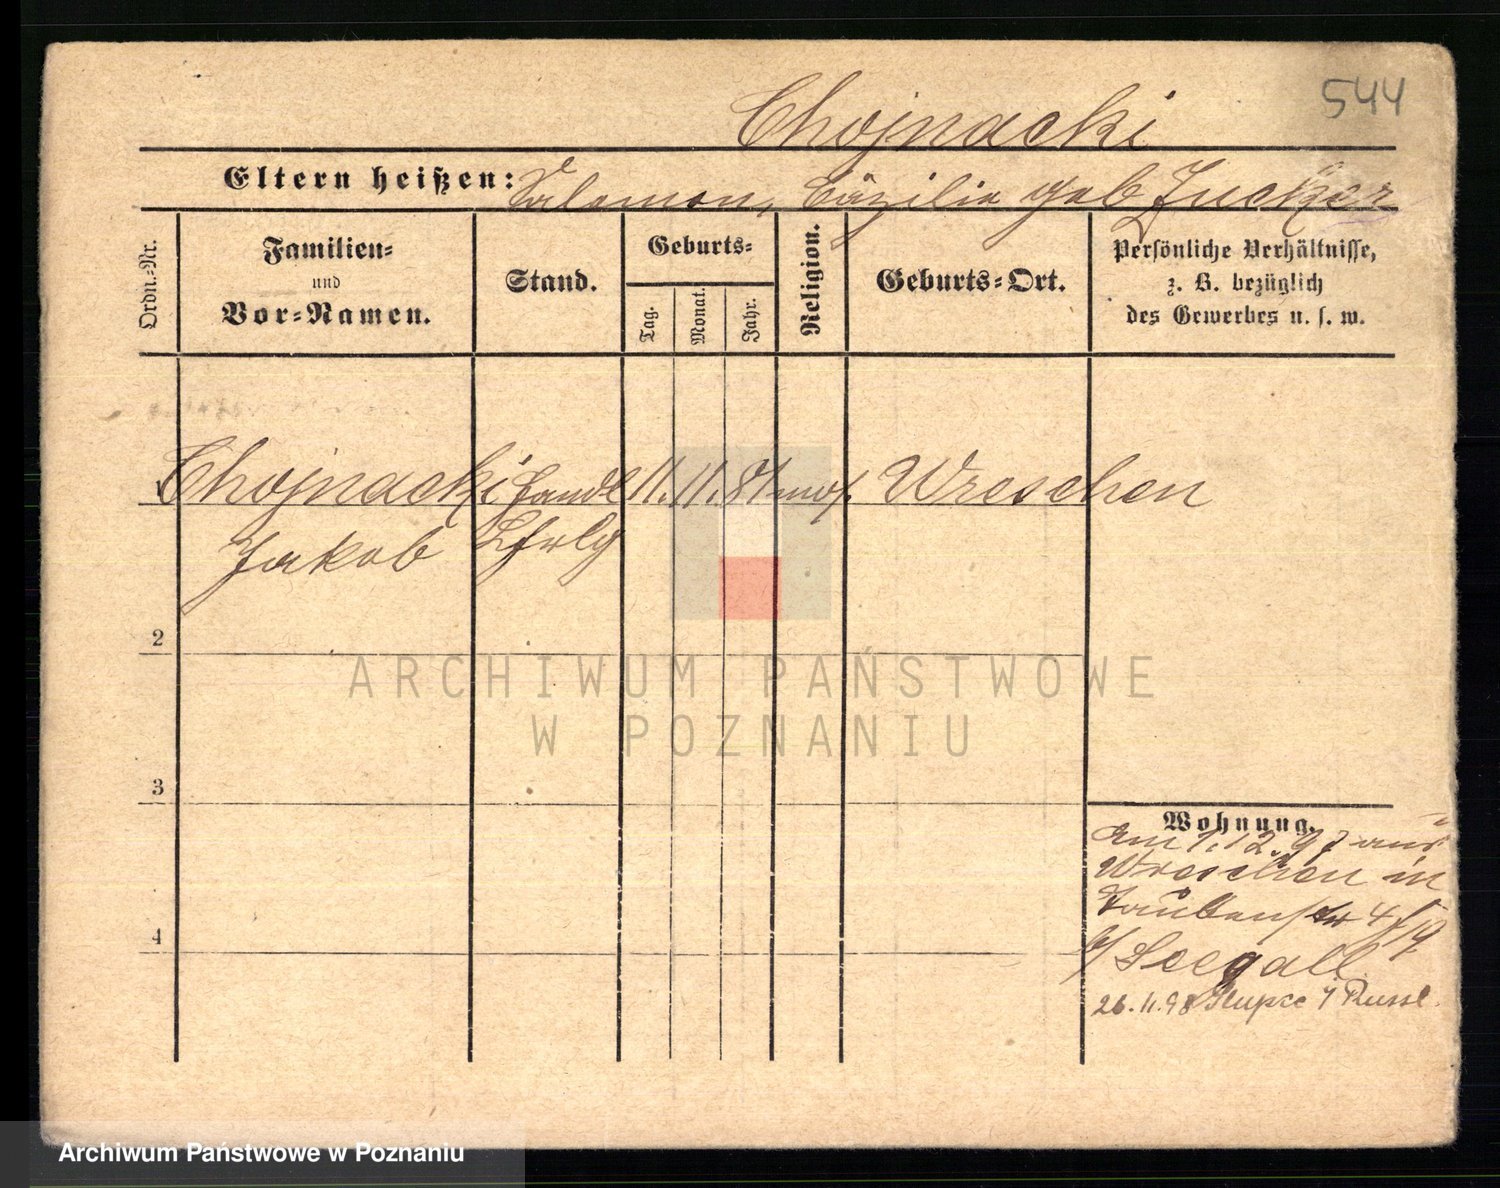 544
Chojnacki
Eltern heißen: Salomon, Cäzilie geb Zucker
Ordn.-Nr.
Familien-
und
Vor-Namen.
Stand.
Geburts-
Tag.
Monat.
Jahr.
Religion.
Geburts-Ort.
Persönliche Verhältnisse,
z. B. bezüglich
des Gewerbes u. s. w.
1 Chojnacki Handl 11. 11. 81 mos. Wreschen
Jakob Lhrlg
2
3
4
Wohnung.
Am 1.12.97 aus
Wreschen in
Taubenstr 4
b/ Seegall
26.11.98 Slupce i Russl.
ARCHIWUM PAŃSTWOWE
W POZNANIU
Archiwum Państwowe w Poznaniu